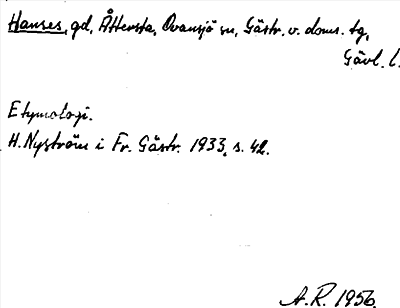 Hanses, gd, Åttersta, Ovansjö sn, Gästr. v. doms. tg,
Gävl. l.
Etymologi.
H. Nyström i Fr. Gästr. 1933, s. 42.
A.R. 1956.